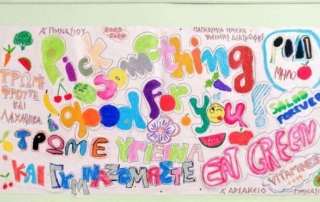 Α' ΓΥΜΝΑΣΙΟΥ
2023-2024
ΠΑΓΚΟΣΜΙΑ ΗΜΕΡΑ
ΔΙΑΤΡΟΦΗΣ
Pick something
good for you!
ΜΗΛΟ
ΤΡΩΜΕ
ΦΡΟΥΤΑ
ΚΑΙ
ΛΑΧΑΝΙΚΑ
SALAD
FOREVER
ΤΡΩΜΕ ΥΓΙΕΙΝΑ
EAT GREEN
ΚΑΙ ΓΥΜΝΑΖΟΜΑΣΤΕ
Α' ΑΡΣΑΚΕΙΟ